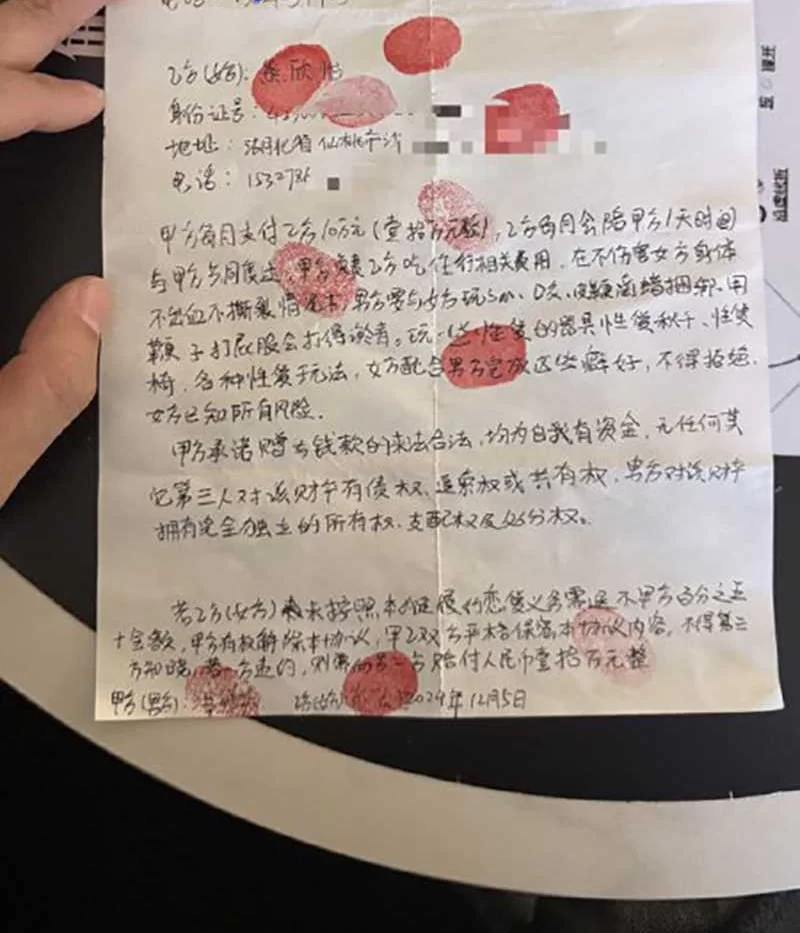 乙方(女方):
身份证号:
地址:湖北省仙桃市沙
电话:1532786
甲方每月支付乙方10万元(壹拾万元整),乙方每月会陪甲方1天时间
与甲方共同度过,甲方负责乙方吃住行相关费用,在不伤害女方身体
不出血不撕裂情况下,男方要与女方玩sm、口交、皮鞭滴蜡捆绑,用
鞭子打屁股会打得淤青。玩一些性爱的器具性爱秋千、性爱
椅,各种性爱玩法,女方配合男方完成这些癖好,不得拒绝,
女方已知所有风险。
甲方承诺赠与钱款的来法合法,均为自我有资金,无任何其
它第三人对该财产有债权、追索权或共有权,男方对该财产
拥有完全独立的所有权、支配权及处分权。
若乙方(女方)未按照本 履行恋爱义务需退还甲方百分之五
十金额,甲方有权解除本协议,甲乙双方严格保密本协议内容,不得第三
方知晓,若一方违约,则需向另一方赔付人民币壹拾万元整
甲方(男方): 2024年12月5日